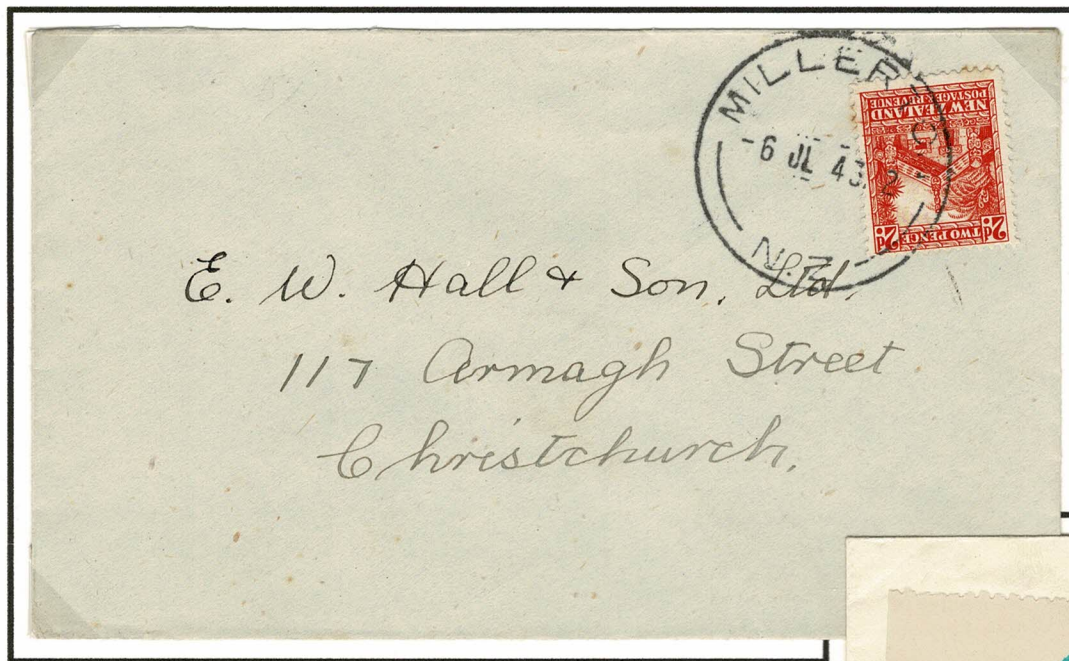 MILLER'S
-6 JL 43
N.Z.
NEW ZEALAND
POSTAGE & REVENUE
TWO PENCE
2d 2d
E. W. Hall & Son, Ltd.
117 Armagh Street
Christchurch.